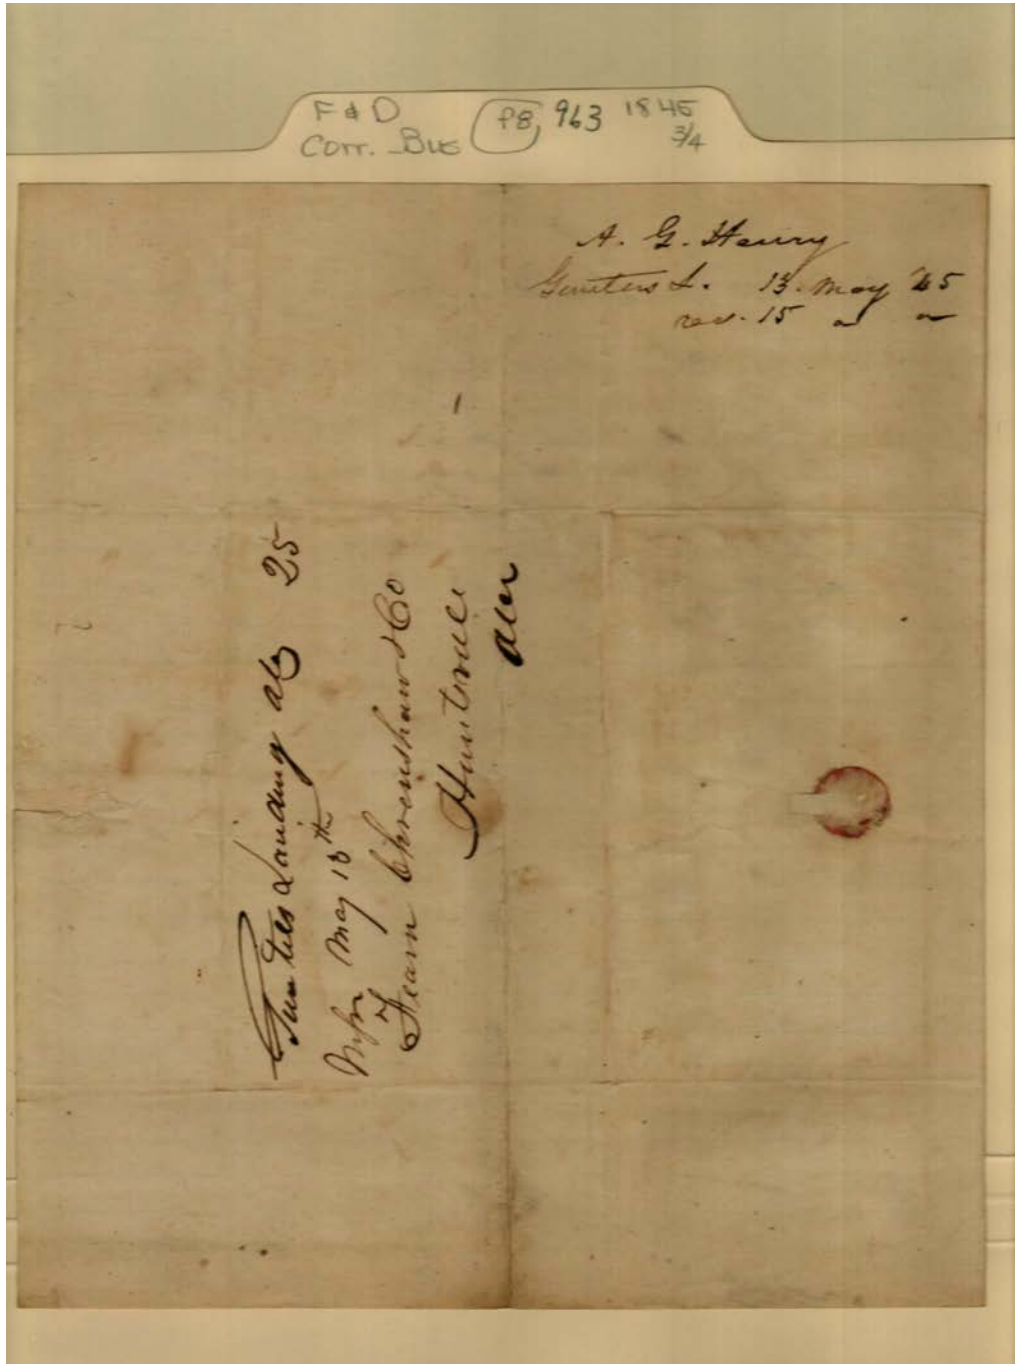 F & D
Corr. Bus
P8, 963 1845
3/4
A. G. Henry
Gunters L. 13. May 45
rec. 15 " "
Gunters Landing Ala 25
May 13th
Messrs
Fearn Chrenshaw & Co
Huntsville
Ala